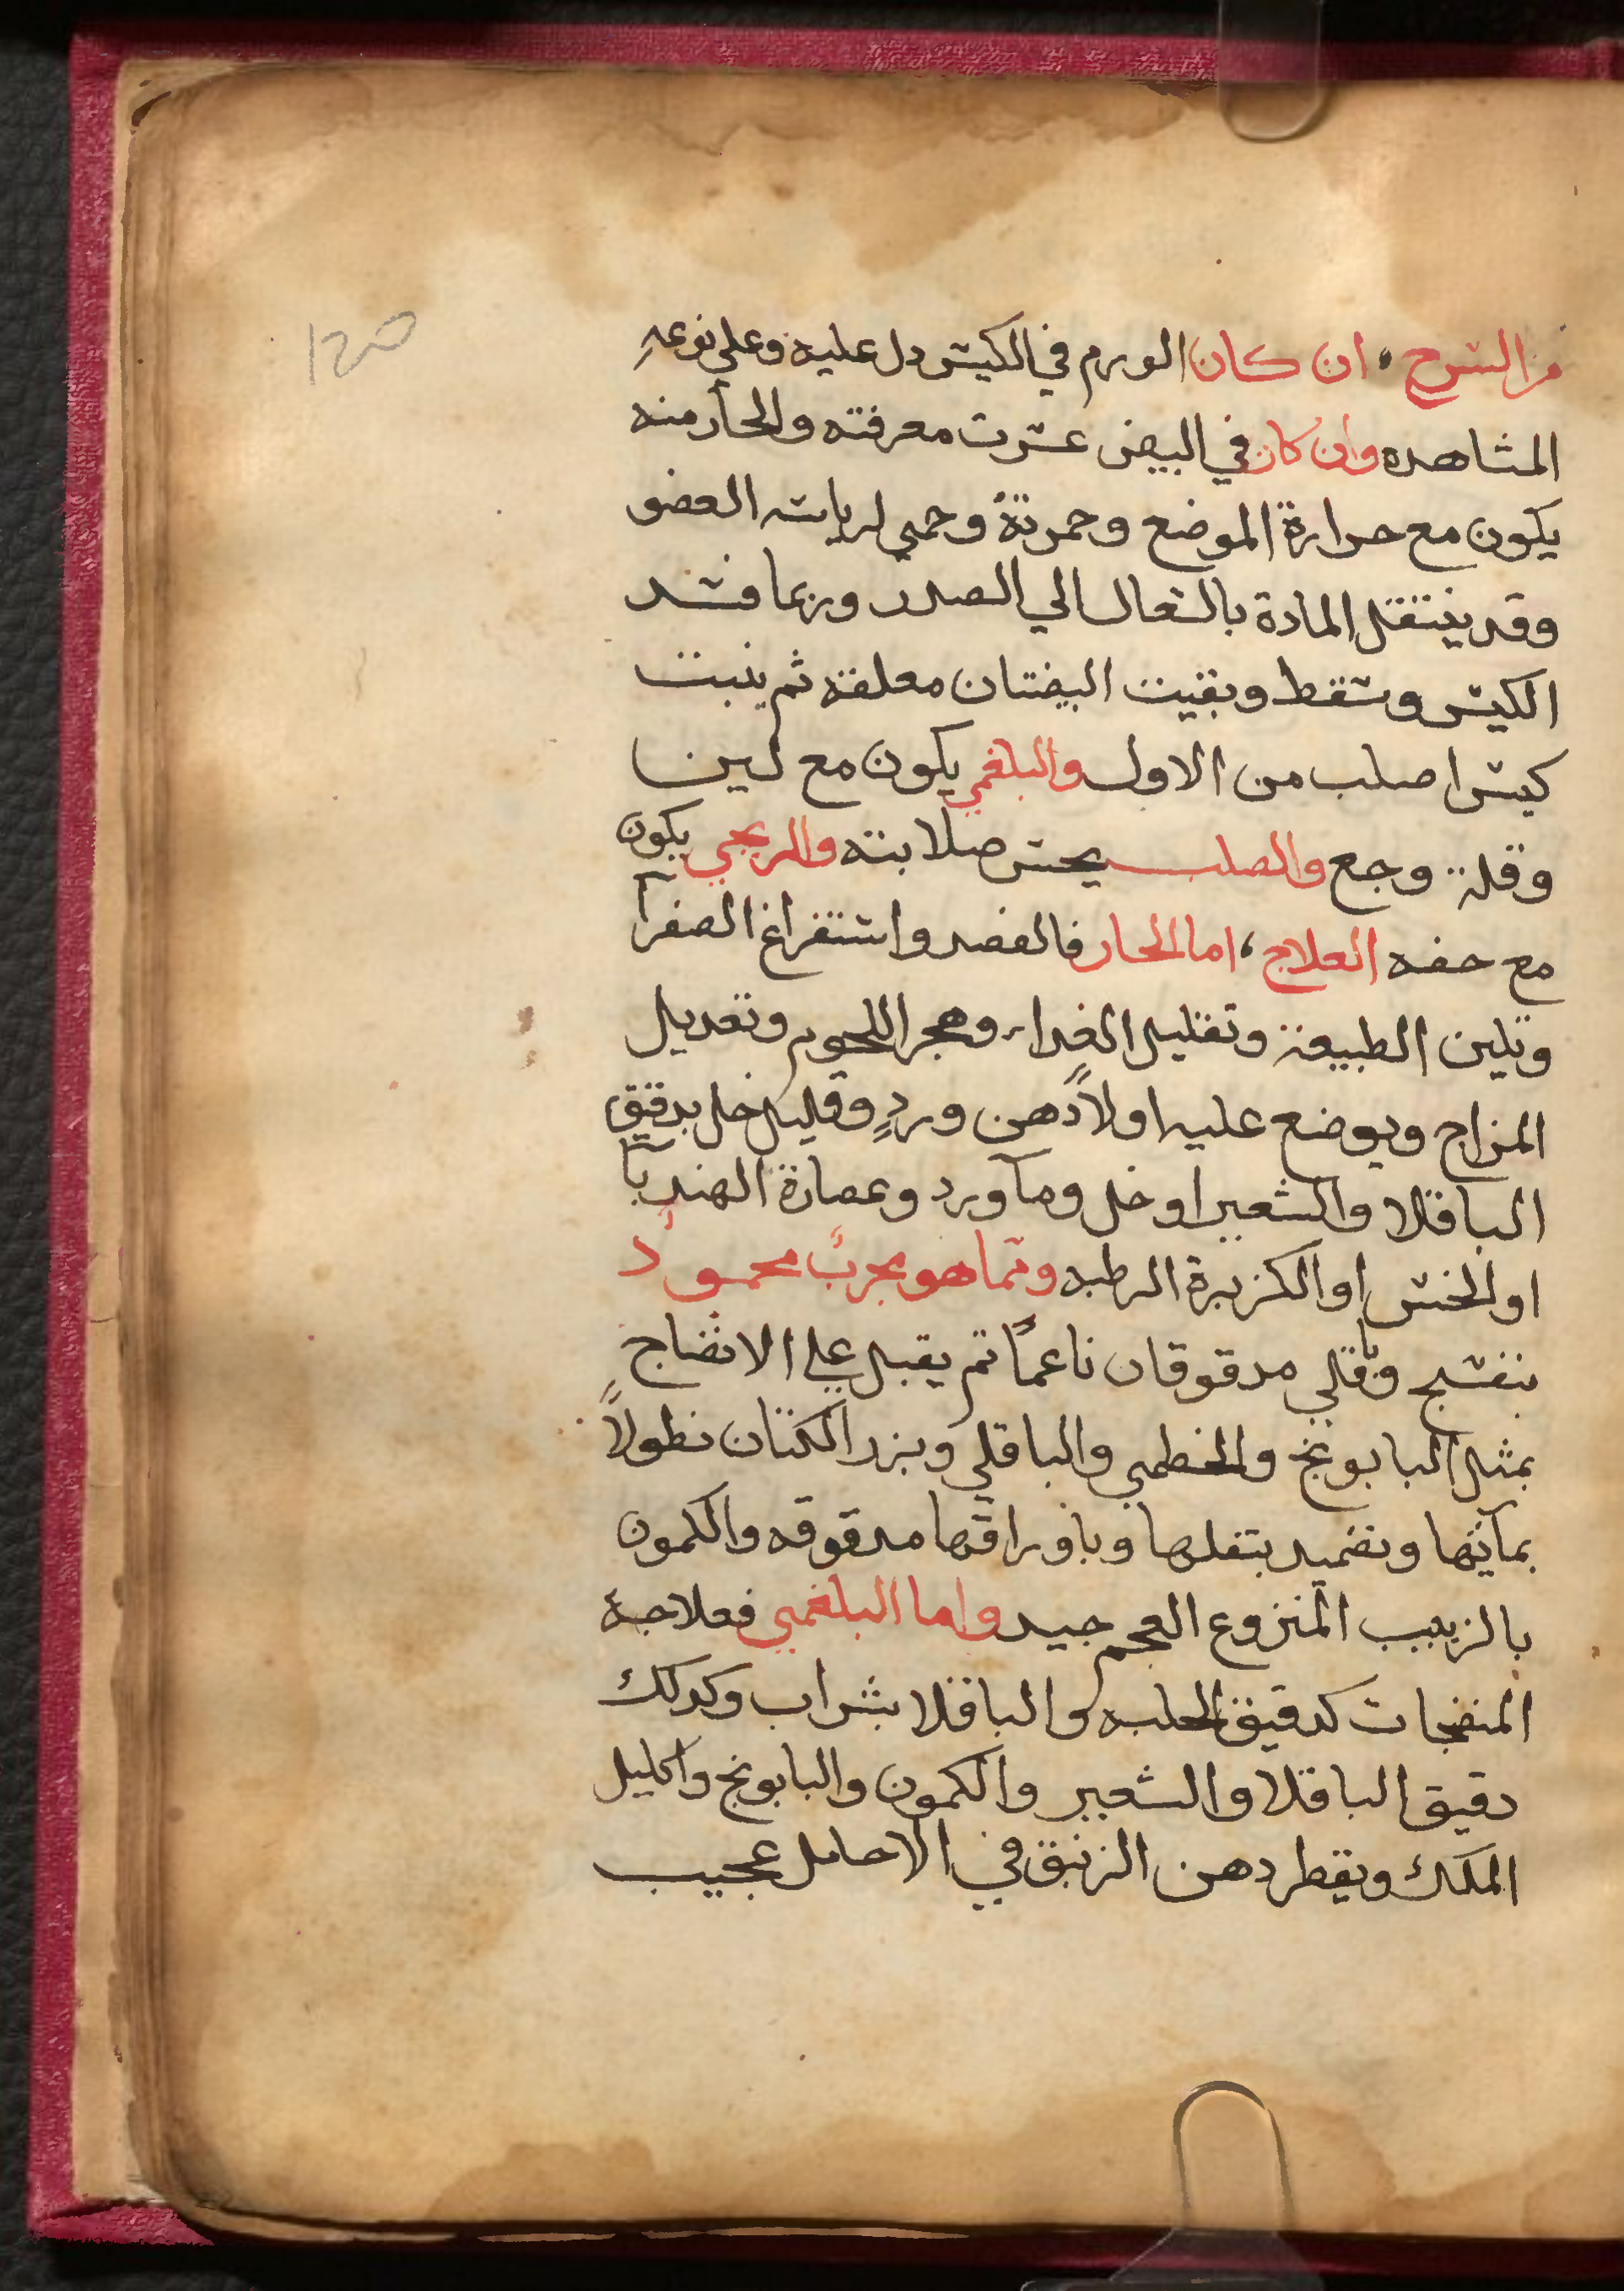 من الشرح ، ان كان الورم في الكيس دل عليه وعلي نوعه
المشاهده وان كان في البيض عسرت معرفته والحار منه
يكون مع حرارة الموضع وحمرتة وحمي لرياسه العضو
وقد ينتقل المادة بالسعال الي الصدر وربما فسد
الكيس وسقط وبقيت البيضتان معلقه ثم ينبت
كيس اصلب من الاول والبلغمي يكون مع لين
وقلة وجع والصلب يحس صلابته والريحي يكون
مع خفه العلاج ، اما الحار فالفصد واستفراغ الصفرآ
وتلين الطبيعة وتقليل الغدا وهجر اللحوم وتعديل
المزاج ويوضع عليه اولاً دهن وردٍ وقليل خل بدقيق
الباقلا والشعير او خل ومآ ورد وعصارة الهندبآ
او الخس او الكزبرة الرطبه ومما هو مجرب محمود
بنفسج وباقلي مدقوقان ناعماً ثم يقبل علي الانضاج
بمثل البابونج والخطمي والباقلي وبزر الكتان نطولاً
بمآئها وتضميد بتفلها وباوراقها مدقوقه والكمون
بالزبيب المنزوع العجم جيد واما البلغمي فعلاجة
المنضجات كدقيق الحلبه والباقلا بشراب وكدلك
دقيق الباقلا والشعير والكمون والبابونج واكليل
الملك ويقطر دهن الزنبق في الاحامل عجيب